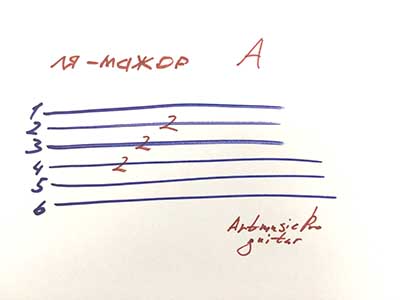 ля-мажор A
1
2 2
3 2
4 2
5
6
ArtmusicPro
guitar